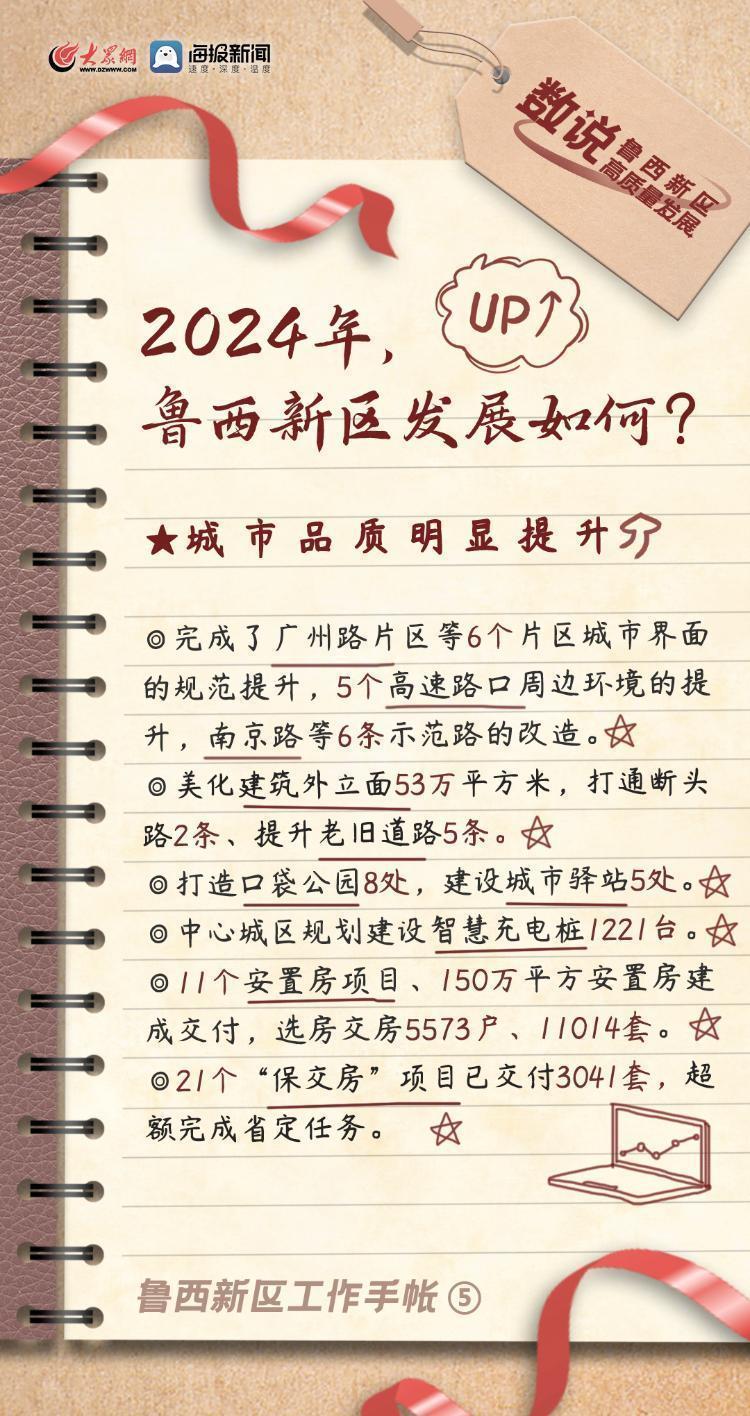 大众网
WWW.DZWWW.COM
海报新闻
速度·深度·温度
数说
鲁西新区
高质量发展
UP↑
2024年，
鲁西新区发展如何？
★城市品质明显提升
◎完成了广州路片区等6个片区城市界面
的规范提升，5个高速路口周边环境的提
升，南京路等6条示范路的改造。
◎美化建筑外立面53万平方米，打通断头
路2条、提升老旧道路5条。
◎打造口袋公园8处，建设城市驿站5处。
◎中心城区规划建设智慧充电桩1221台。
◎11个安置房项目、150万平方安置房建
成交付，选房交房5573户、11014套。
◎21个“保交房”项目已交付3041套，超
额完成省定任务。
鲁西新区工作手帐⑤